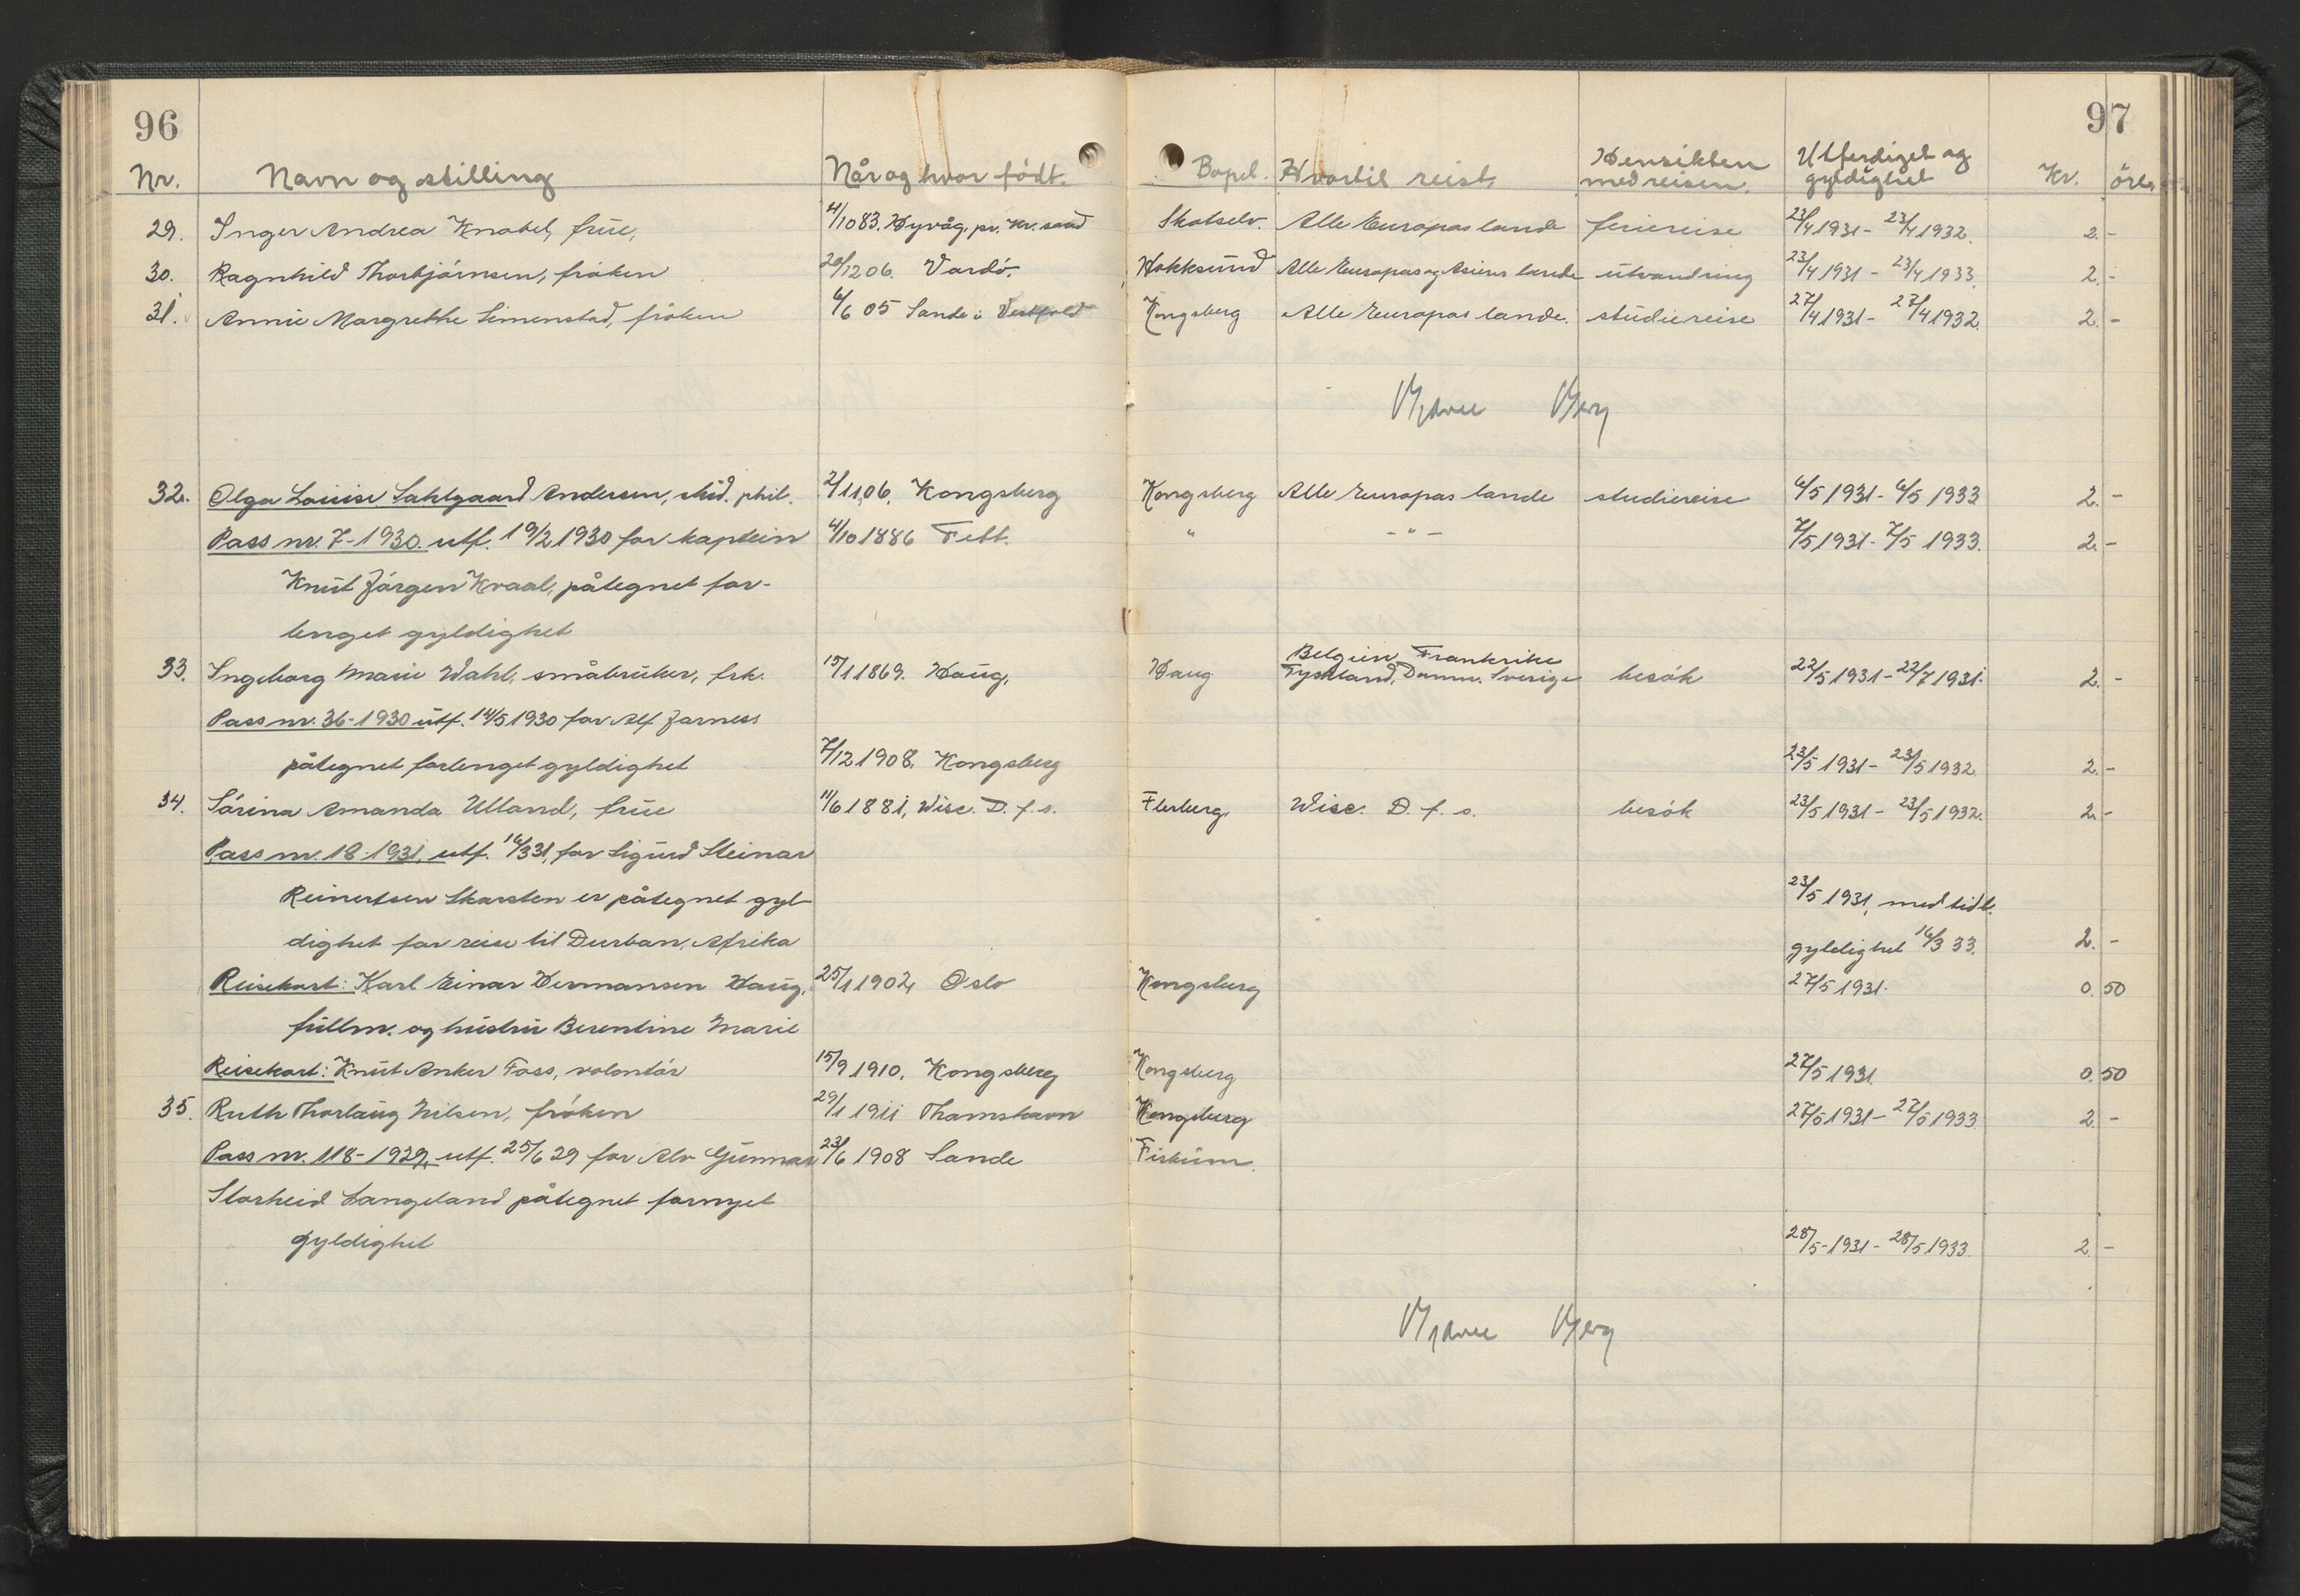 96
97
Nr. Navn og stilling Når og hvor født. Bopel. Hvortil reist. Hensikten med reisen. Utferdiget og gyldighet Kr. öre
29. Inger Andrea Knabel, frue, 4/10 83. Høvåg, pr. Kr.sand Skotselv. Alle Europas lande feriereise 23/4 1931 - 23/4 1932. 2. -
30. Ragnhild Thorbjørnsen, frøken 20/12 06. Vardø. Hokksund Alle Europas og Asiens lande utvandring 23/4 1931 - 23/4 1933. 2. -
31. Annie Margrethe Simenstad, frøken 6/6 05 Sande i Vestfold Kongsberg Alle Europas lande. studiereise 27/4 1931 - 27/4 1932. 2. -
Berg
32. Olga Louise Sahlgaard Andersen, stud. phil. 2/11 06. Kongsberg Kongsberg Alle Europas lande studiereise 6/5 1931 - 6/5 1933 2. -
Pass nr. 7 - 1930. utf. 19/2 1930 for kaptein 4/10 1886 Fett. " - " - 7/5 1931 - 7/5 1933. 2. -
Knut Jörgen Kvaal, påtegnet for-
lenget gyldighet
33. Ingeborg Marie Wahl, småbruker, frk. 15/1 1869. Haug. Haug Belgien, Frankrike Tyskland, Danm. Sverige besøk 22/5 1931 - 22/7 1931. 2. -
Pass nr. 36 - 1930 utf. 14/5 1930 for Alf Jarness
påtegnet forlenget gyldighet 7/12 1908. Kongsberg 23/5 1931 - 23/5 1932. 2. -
34. Sörina Amanda Ulland, frue 11/6 1881, Wisc. D. f. s. Flesberg. Wisc. D. f. s. besøk 23/5 1931 - 23/5 1932. 2. -
Pass nr. 18 - 1931, utf. 16/3 31, for Sigurd Steinar
Reinertsen Skarsten er påtegnet gyl- 23/5 1931, med tidl.
dighet for reise til Durban, Afrika gyldighet 16/3 33. 2. -
Reisekort: Karl Einar Hermansen Haug, 25/1 1902, Oslo Kongsberg 27/5 1931. 0. 50
fullm. og hustru Berentine Marie
Reisekort: Knut Anker Foss, volontør 15/9 1910. Kongsberg Kongsberg 27/5 1931. 0. 50
35. Ruth Thorlaug Nilsen, frøken 29/1 1911 Thamshavn Kongsberg 27/5 1931 - 27/5 1933. 2. -
Pass nr. 118 - 1929, utf. 25/6 29 for Alv Gunnar 23/6 1908 Sande Fiskum.
Storheid Langeland påtegnet fornyet
gyldighet 28/5 - 1931 - 28/5 1933. 2. -
Berg